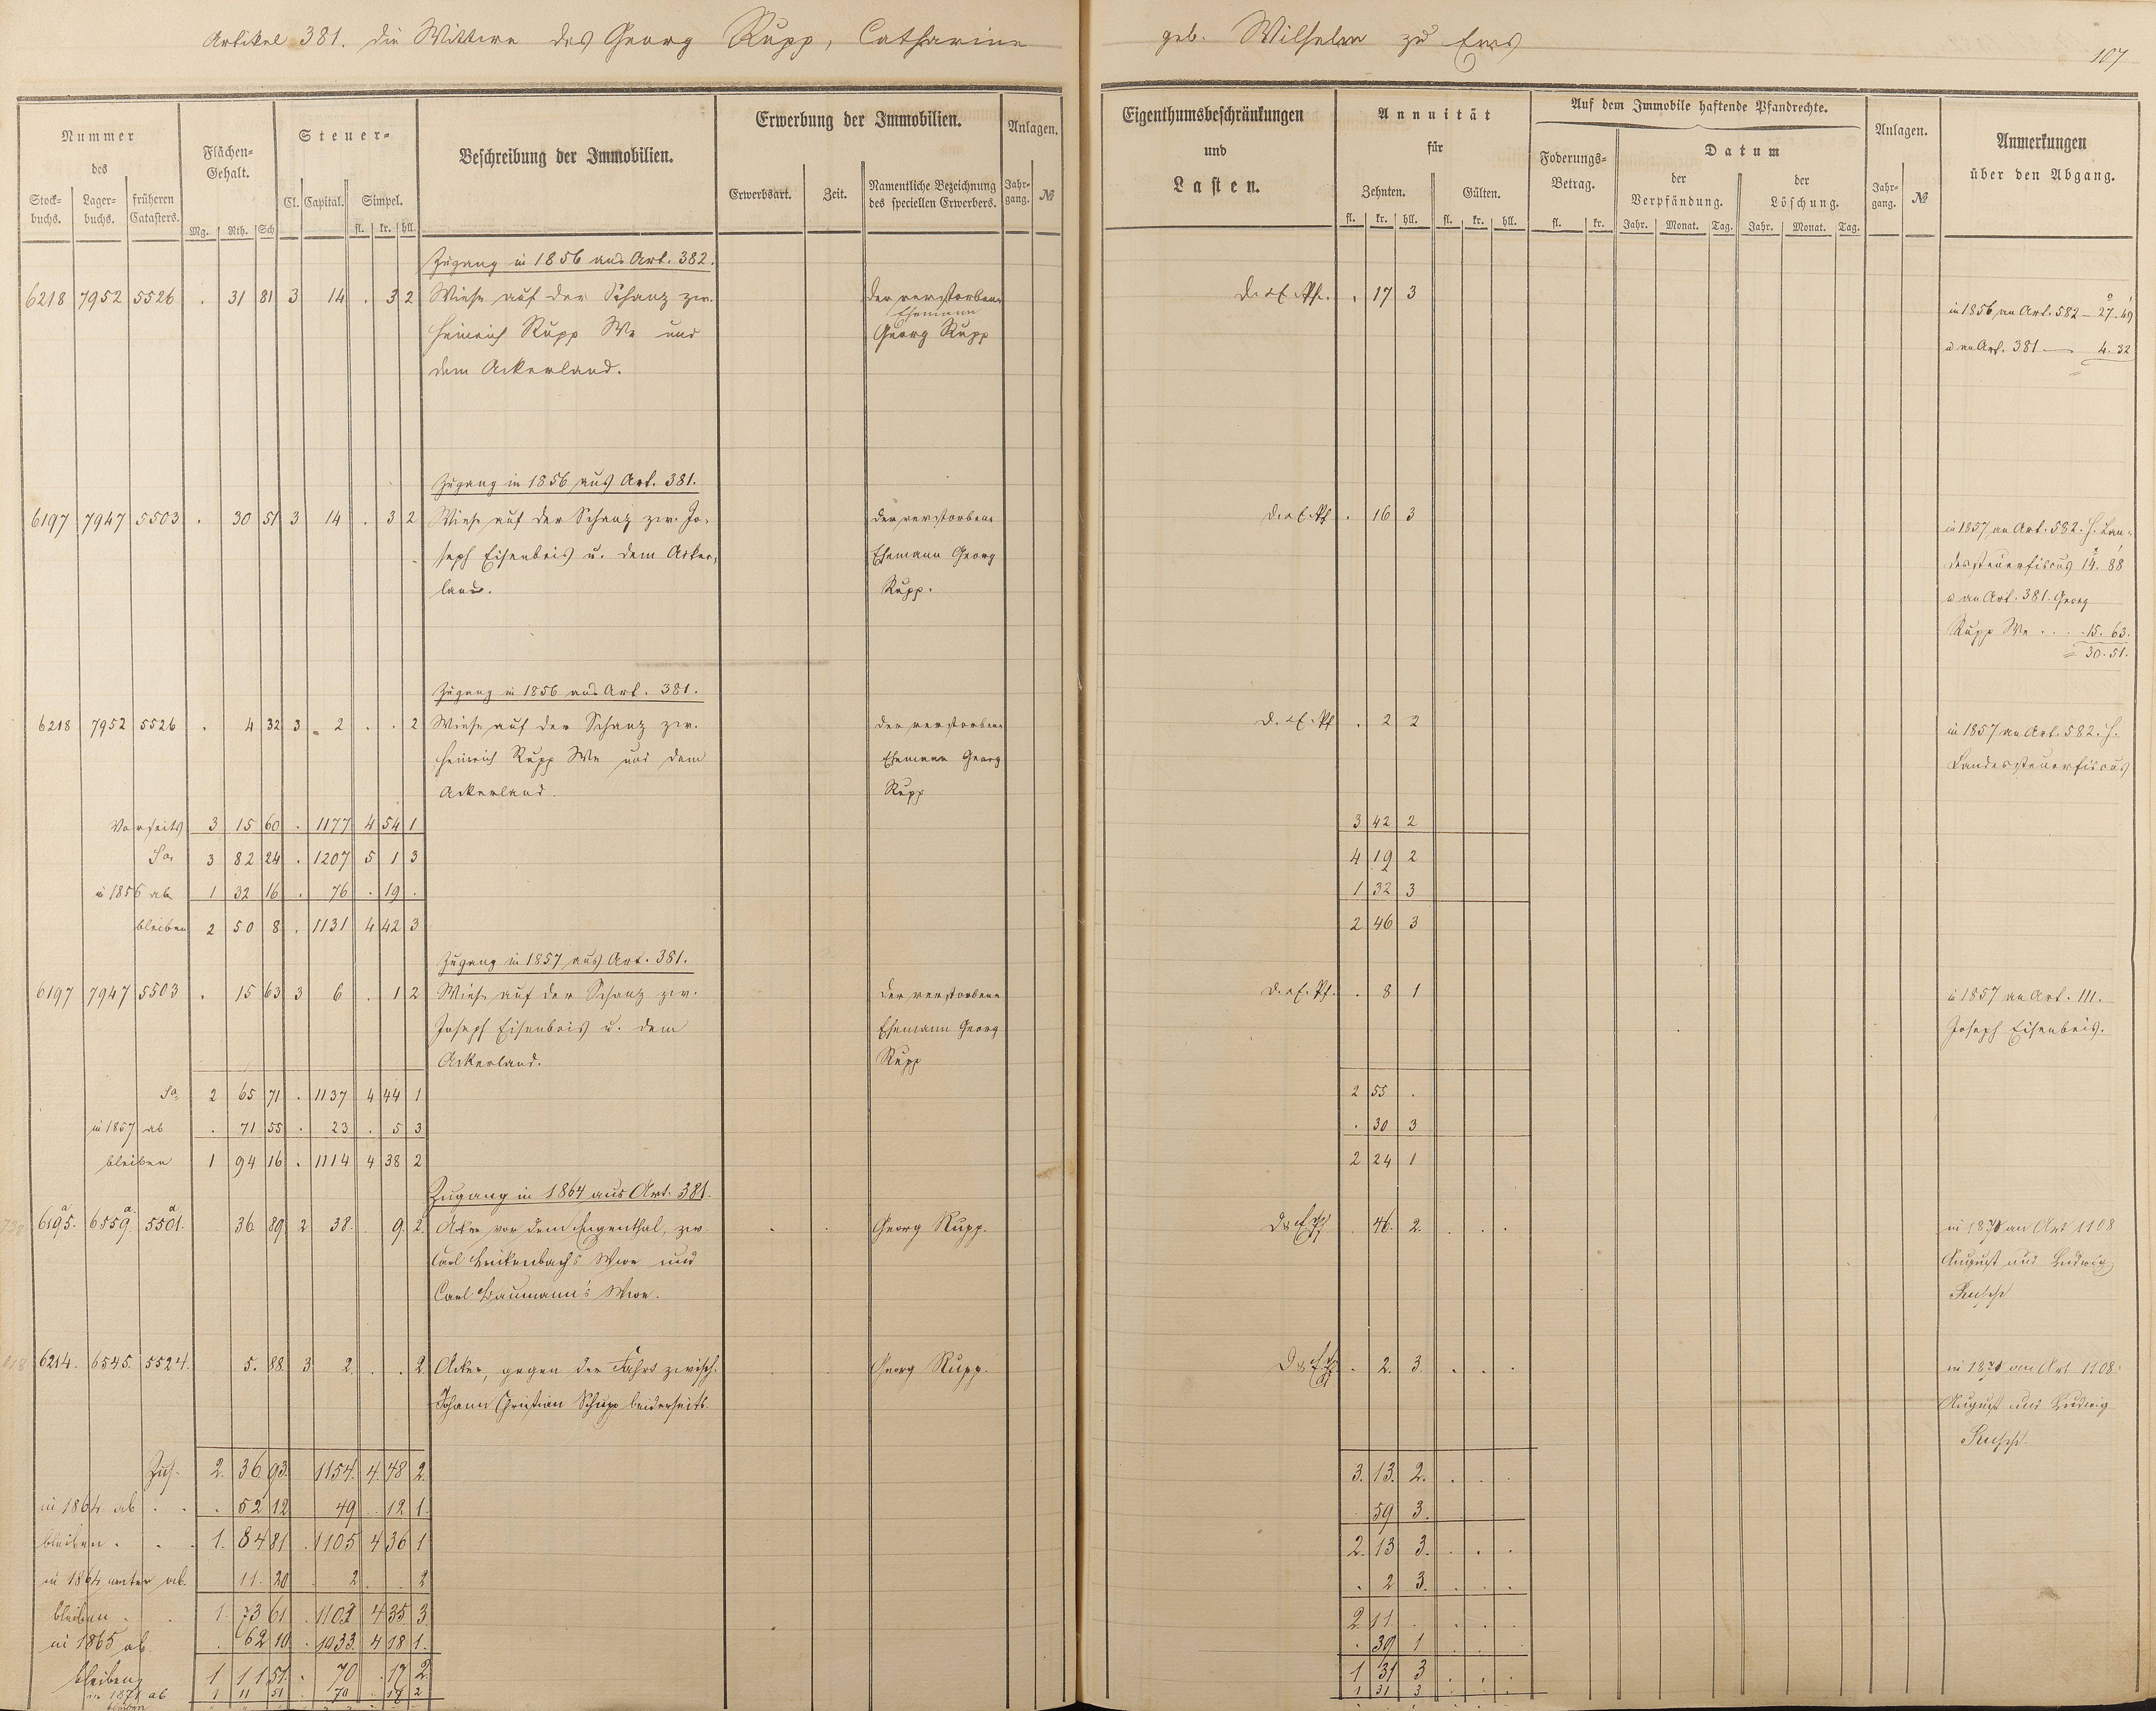 Artikel 381. die Wittwe des Georg Rupp, Catharine geb. Wilhelm zu Ems
107
Nummer des
Stockbuchs. Lagerbuchs. früheren Catasters.
Flächen-Gehalt.
Mg. Rth. Sch.
Steuer-
Cl. Capital. Simpel.
fl. kr. hll.
Beschreibung der Immobilien.
Erwerbung der Immobilien.
Erwerbsart. Zeit. Namentliche Bezeichnung des speciellen Erwerbers.
Anlagen.
Jahrgang. №
Eigenthumsbeschränkungen
und
Lasten.
Annuität
für
Zehnten. Gülten.
fl. kr. hll. fl. kr. hll.
Auf dem Immobile haftende Pfandrechte.
Foderungs-Betrag.
fl. kr.
Datum
der Verpfändung. der Löschung.
Jahr. Monat. Tag. Jahr. Monat. Tag.
Anlagen.
Jahrgang. №
Anmerkungen
über den Abgang.
Zugang in 1856 aus Art. 382.
6218 7952 5526 . 31 81 3 14 . 3 2 Wiese auf der Schanz zw. der verstorbene . 17 3
Ehemann
Heinrich Rupp We und Georg Rupp
dem Ackerland.
in 1856 an Art. 582 – 27. 49
u an Art. 381 — 4. 32
Zugang in 1856 aus Art. 381.
6197 7947 5503 . 30 51 3 14 . 3 2 Wiese auf der Schanz zw. Jo- der verstorbene . 16 3
seph Eisenbeis u. dem Acker- Ehemann Georg
land. Rupp.
in 1857 an Art. 582. H. Lan-
dessteuerfiscus 14. 88
u an Art. 381. Georg
Rupp We . . . 15. 63.
= 30. 51.
Zugang in 1856 aus Art. 381.
6218 7952 5526 . 4 32 3 2 . . 2 Wiese auf der Schanz zw. der verstorbene . 2 2 in 1857 an Art. 582. H.
Heinrich Rupp We und dem Ehemann Georg Landessteuerfiscus
Ackerland. Rupp
Vorseits 3 15 60 . 1177 4 54 1 3 42 2
Sa 3 82 24 . 1207 5 1 3 4 19 2
in 1856 ab 1 32 16 . 76 . 19 . 1 32 3
bleiben 2 50 8 . 1131 4 42 3 2 46 3
Zugang in 1857 aus Art. 381.
6197 7947 5503 . 15 63 3 6 . 1 2 Wiese auf der Schanz zw. der verstorbene . 8 1 in 1857 an Art. 111.
Joseph Eisenbeis u. dem Ehemann Georg Joseph Eisenbeis.
Ackerland. Rupp
Sa 2 65 71 . 1137 4 44 1 2 55 .
in 1857 ab . 71 55 . 23 . 5 3 . 30 3
bleiben 1 94 16 . 1114 4 38 2 2 24 1
Zugang in 1864 aus Art. 381.
6195.a 6559.a 5501.a 36 89 2 38. 9. 2. Acker vor dem Eigenthal, zw. Georg Rupp. . 46. 2. in 1870 an Art 1108
Carl Wwe und August und Ludwig
Carl Baumann's Wwe.
6214. 6545. 5524. 5. 88 3 2 . . 2 Acker, gegen der Fahrt zwisch. Georg Rupp. . 2. 3. in 1870 an Art 1108.
Johann Christian Schupp beiderseits. August und Ludwig
Zus. 2. 36. 93. 1154. 4. 48 2. 3. 13. 2.
in 1864 ab . 52 12 49 . 12 1. . 59 3.
bleiben . 1. 84 81 . 1105 4 36 1 2. 13 3.
in 1864 weiter ab. 11. 20 2 . . 2 . 2 3.
bleiben . 1. 73 61 . 1103 4 35 3 2 11 .
in 1865 ab . 62 10 . 1033. 4 18 1. . 39 1
bleiben 1 11 51. . 70 . 17 2. 1 31 3
in 1871 ab 1 11 51 . 70 . 17 2 1 31 3
bleiben